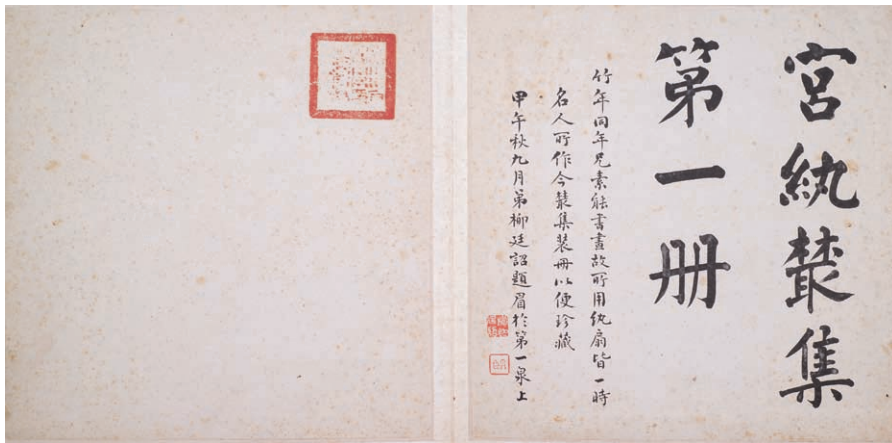 宮紈叢集
第一册
竹年同年兄素能書畫故所用紈扇皆一時
名人所作今叢集裝册以便珍藏
甲午秋九月弟柳廷詔題眉於第一泉上